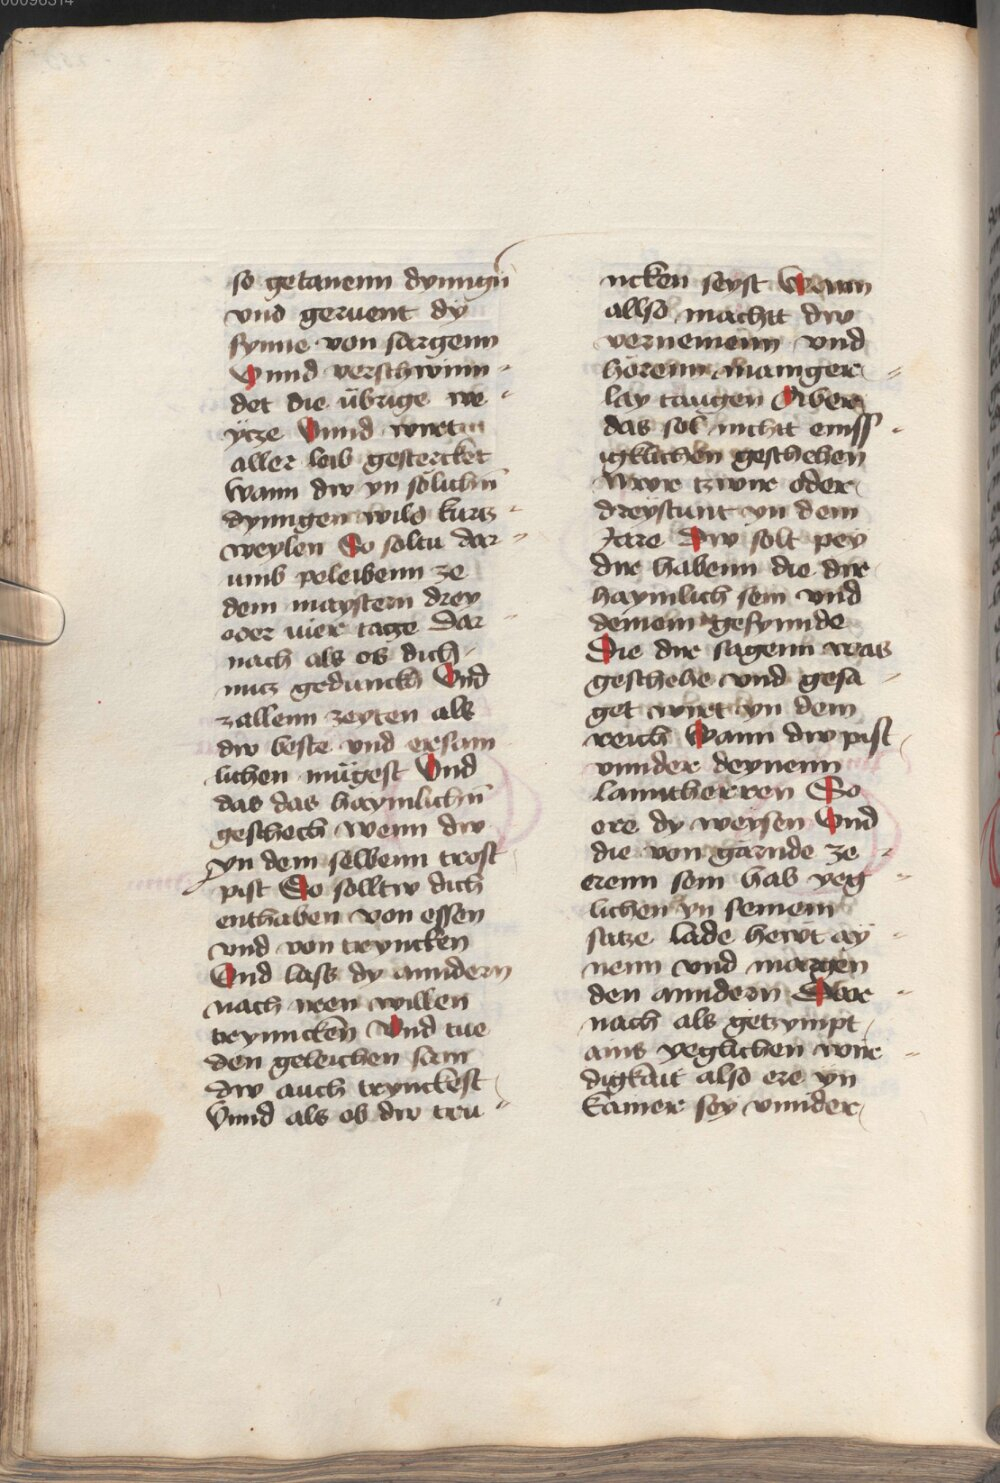 00096314
so getanenn dynngn̄
vnd geruent dy
synne von sorgenn
Vnnd verschwinn-
det die übrige we-
ytze Vnnd wirt
aller leib gestercket
wann dw yn sölichn̄
dynngen wild kurtz-
weylen So soltu dar-
umb peleibenn ze
dem maystern drey
oder uier tage Dar-
nach als ob dich
nutz gedunckh Vnd
zallenn zeyten als
dw beste vnd ersam
lichen mügest Vnd
das das haymlichn̄
geschech wenn dw
yn dem selbenn trost
pist So solltw dich
enthaben von essen
vnd von tryncken
Vnd lass dy anndern
nach iren willen
trynncken Vnd tue
den geleichen sam
dw auch trynckest
Vnnd als ob dw tru-
ncken seyst Wenn
allso machtt dw
vernemenn vnd
hörenn maniger-
lay taugen Aber
das sol nicht emss-
igklichen geschehen
Nwr tzwir oder
dreystunt yn dem
Jare Dw solt pey
dir habenn die dir
haymlich sein vnd
deinem gesynnde
Die dir sagenn was
geschehe vnd gesa-
get wirt yn dem
reich Wann dw pist
vnnder deynenn
lanntherren So
ere dy weysen Vnd
die von gärnde ze-
erenn sein hab yeg-
lichen yn seinem
satze lade hewt ay-
nenn vnd morgen
den anndern Dar-
nach als getzympt
ains yeglichen wir-
digkait also ere yn
Kainer sey vnnder